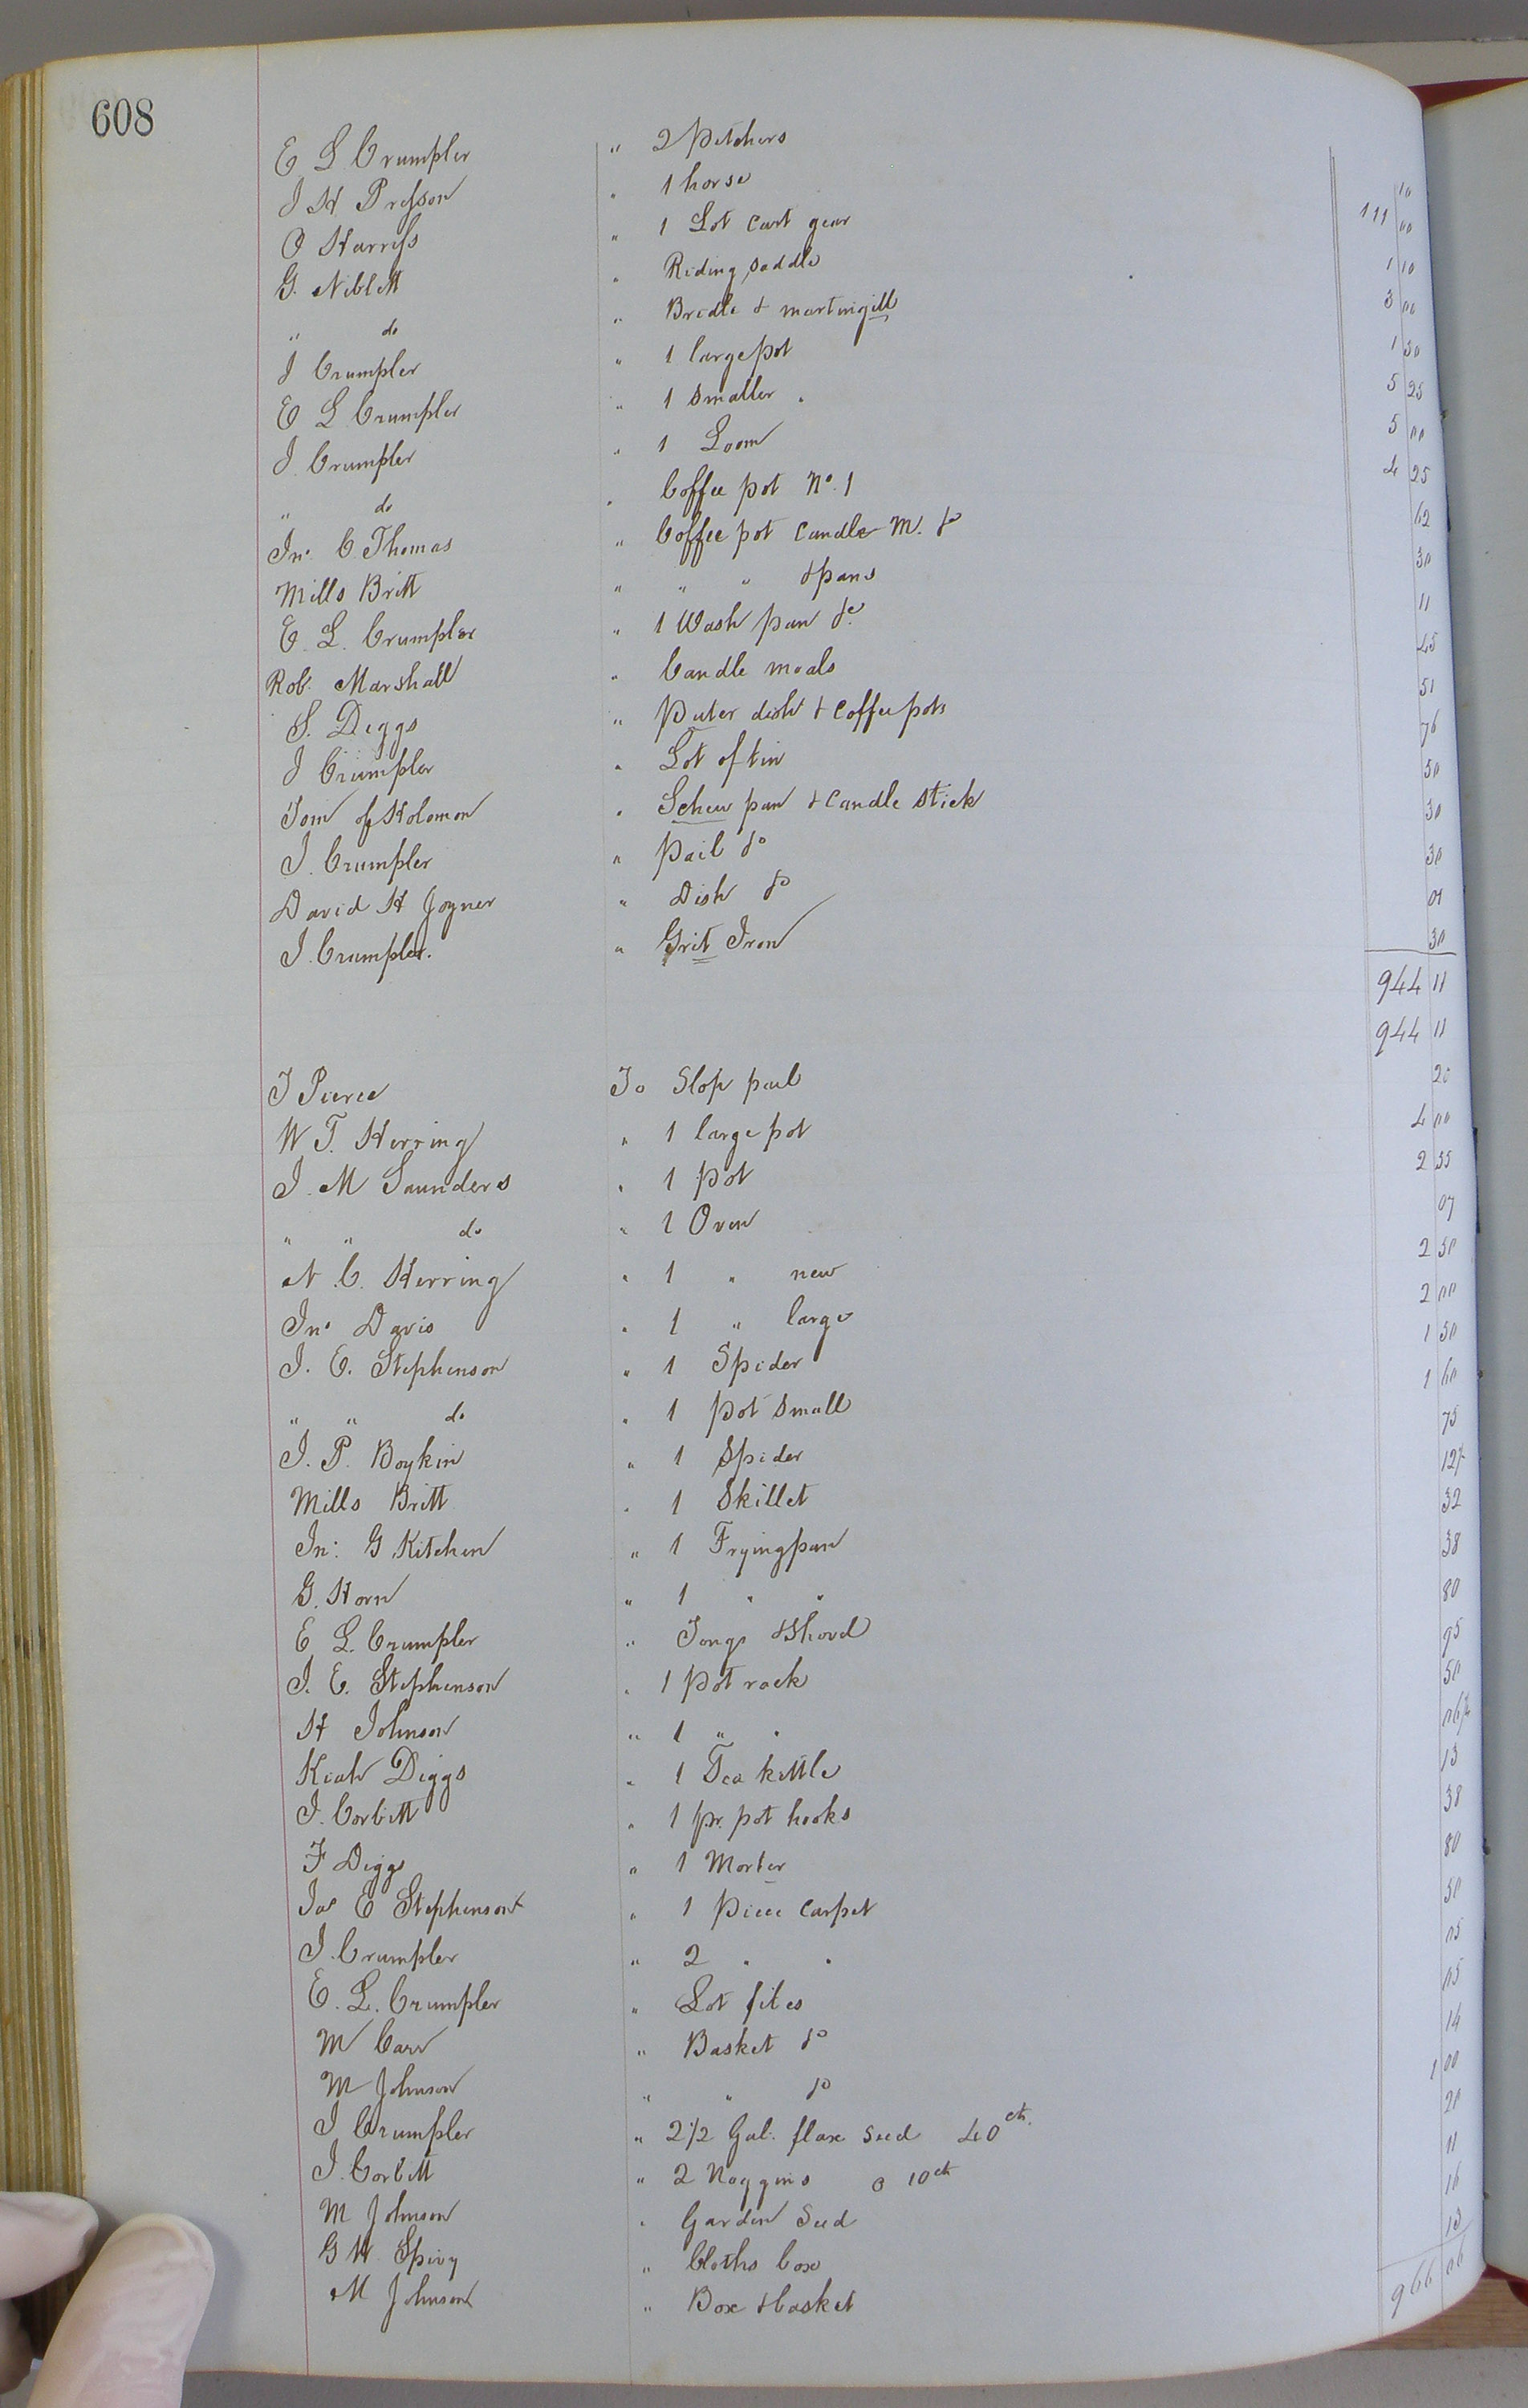 608
E L Crumpler " 2 Pitchers 10
J H Presson " 1 horse 111 00
O Harriss " 1 Lot Cart gear 1 10
G. Niblett " Riding saddle 3 00
" do " Bridle & martingill 1 50
J Crumpler " 1 large pot 5 25
E L Crumpler " 1 Smaller " 5 00
J. Crumpler " 1 Loom 4 25
" do " Coffee pot No. 1 62
Jno. C. Thomas " Coffee pot Candle M. &c 30
Mills Britt " " " & pans 11
E. L. Crumpler " 1 Wash pan &c. 45
Rob. Marshall " Candle moals 51
S. Diggs " Puter dish & Coffee pots 76
J Crumpler " Lot of tin 50
Tom of Holomon " Schew pan & Candle Stick 30
J. Crumpler " Pail &c 30
David H Joyner " Dish &c 07
J. Crumpler. " Grit Iron 30
944 11
944 11
J Pierce To Slop pail 20
W T. Herring " 1 large pot 4 00
J. M Saunders " 1 Pot 2 55
" " do " 1 Oven 07
N. C. Herring " 1 " new 2 50
Jno Davis " 1 " large 2 00
J. E. Stephenson " 1 Spider 1 50
" " do " 1 Pot Small 1 60
J. P. Boykin " 1 Spider 75
Mills Britt " 1 Skillet 12½
Jno. G Kitchen " 1 Fryingpan 32
G. Horn " 1 " " 38
E L. Crumpler " Tongs & Shovel 80
J. E. Stephenson " 1 Pot rack 95
H Johnson " 1 " " 50
Kiah Diggs " 1 Tea kettle 06½
J. Corbitt " 1 pr. pot hooks 13
F Diggs " 1 Morter 38
Jas E Stephenson " 1 Piece Carpet 80
J. Crumpler " 2 " " 50
E. L. Crumpler " Lot files 05
M Carr " Basket &c 05
M Johnson " " &c 14
J Crumpler " 2 1/2 Gal. flax Seed 40 cts. 1 00
J. Corbitt " 2 Noggins @ 10 cts 20
M Johnson " Garden Seed 11
G W. Spivy " Cloths box 16
M Johnson " Box & basket 13
966 06